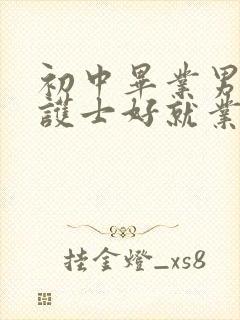 初中畢業男
護士好就業
挂金燈_xs8